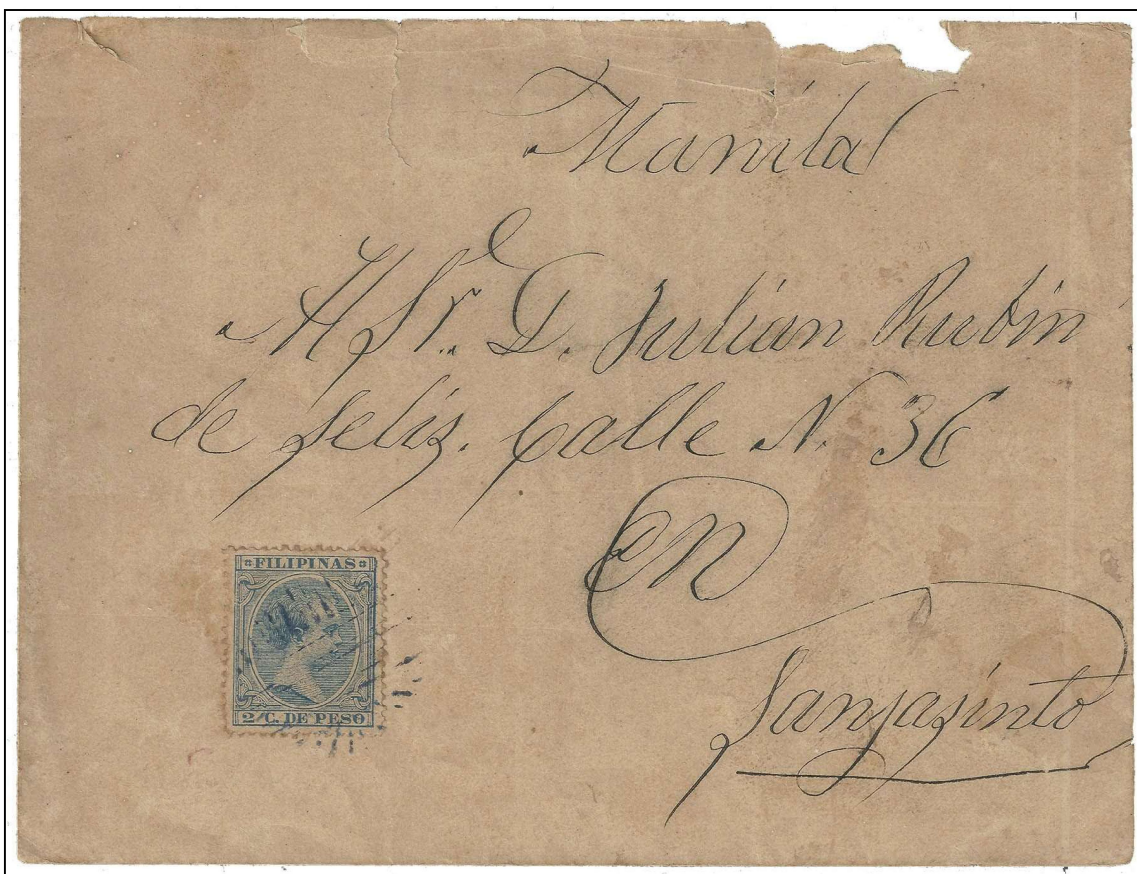 Manila
Al Sr. D. Julian Rubin
de feliz. Calle N. 36
en
Sanjasinto
FILIPINAS
2 C. DE PESO